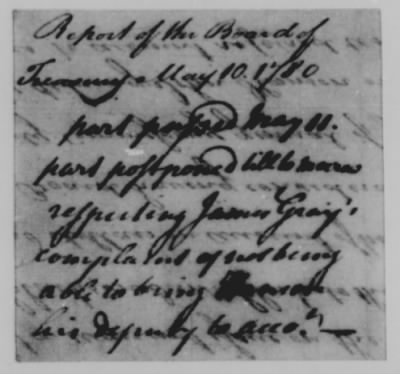 Report of the Board of
Treasury May 10. 1780
part passed May 11.
part postponed till to morrow
respecting James Gray's
complaint of not being
able to bring
his deputy to acco.t —